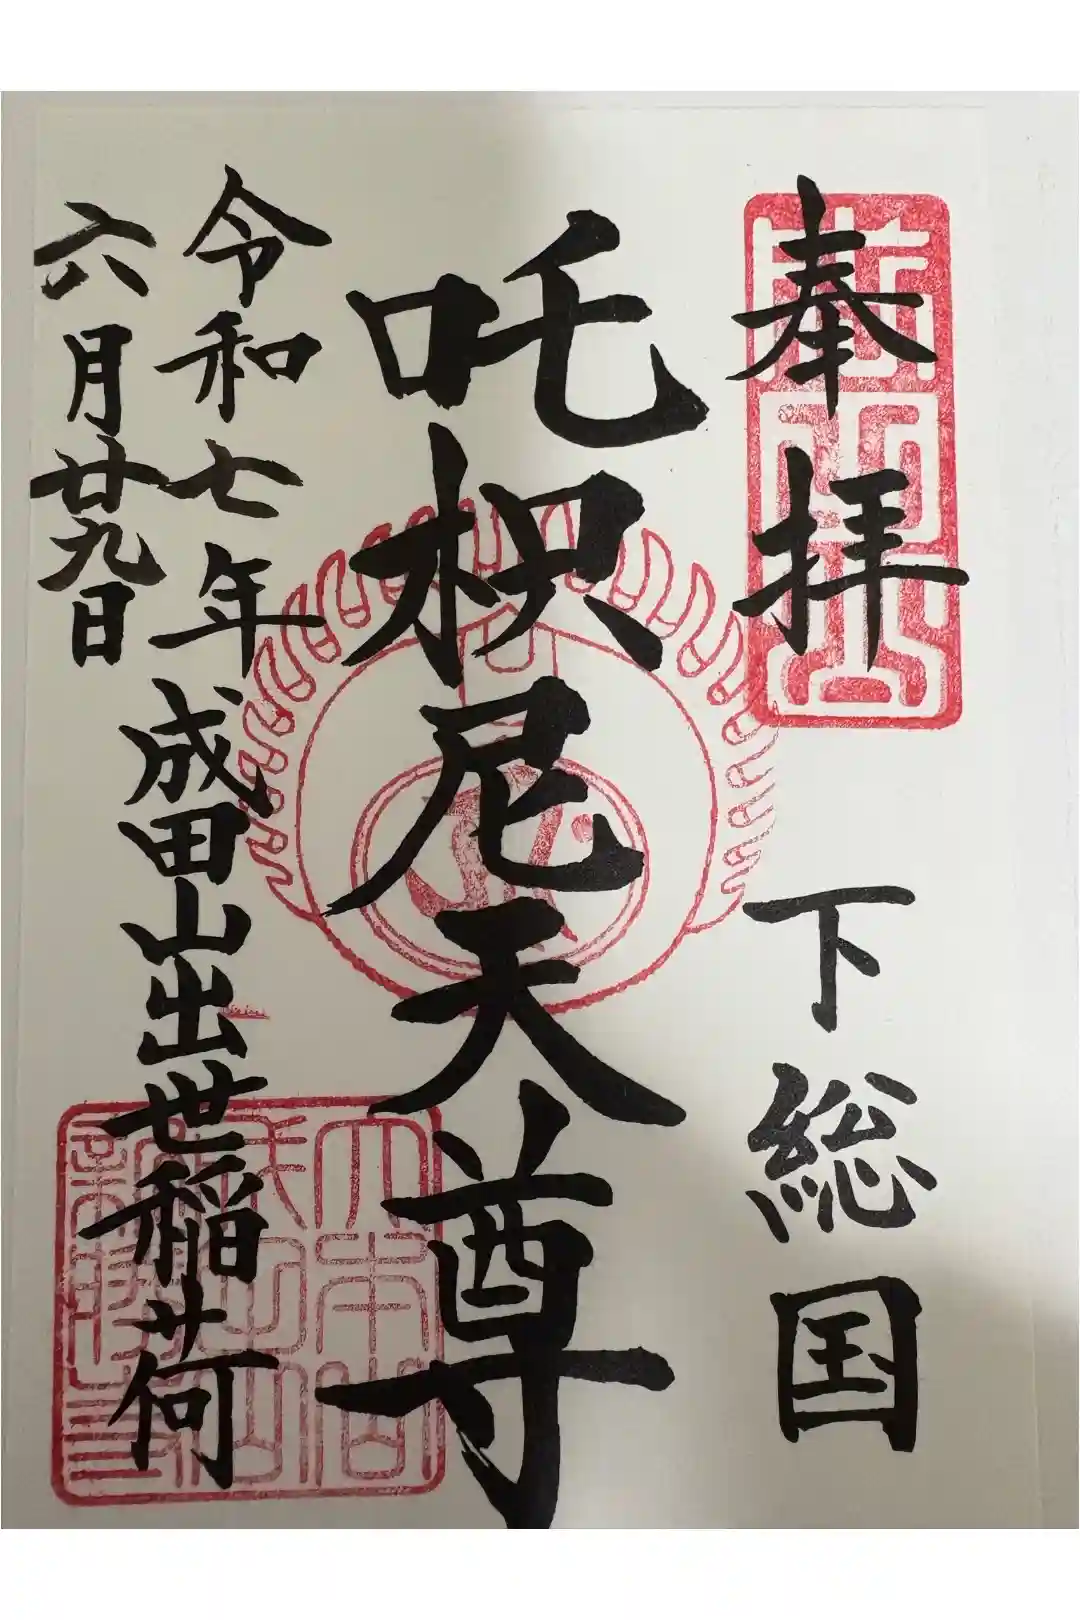 奉拝
下総国
吒枳尼天尊
令和七年
六月廿九日
成田山出世稲荷
成田山